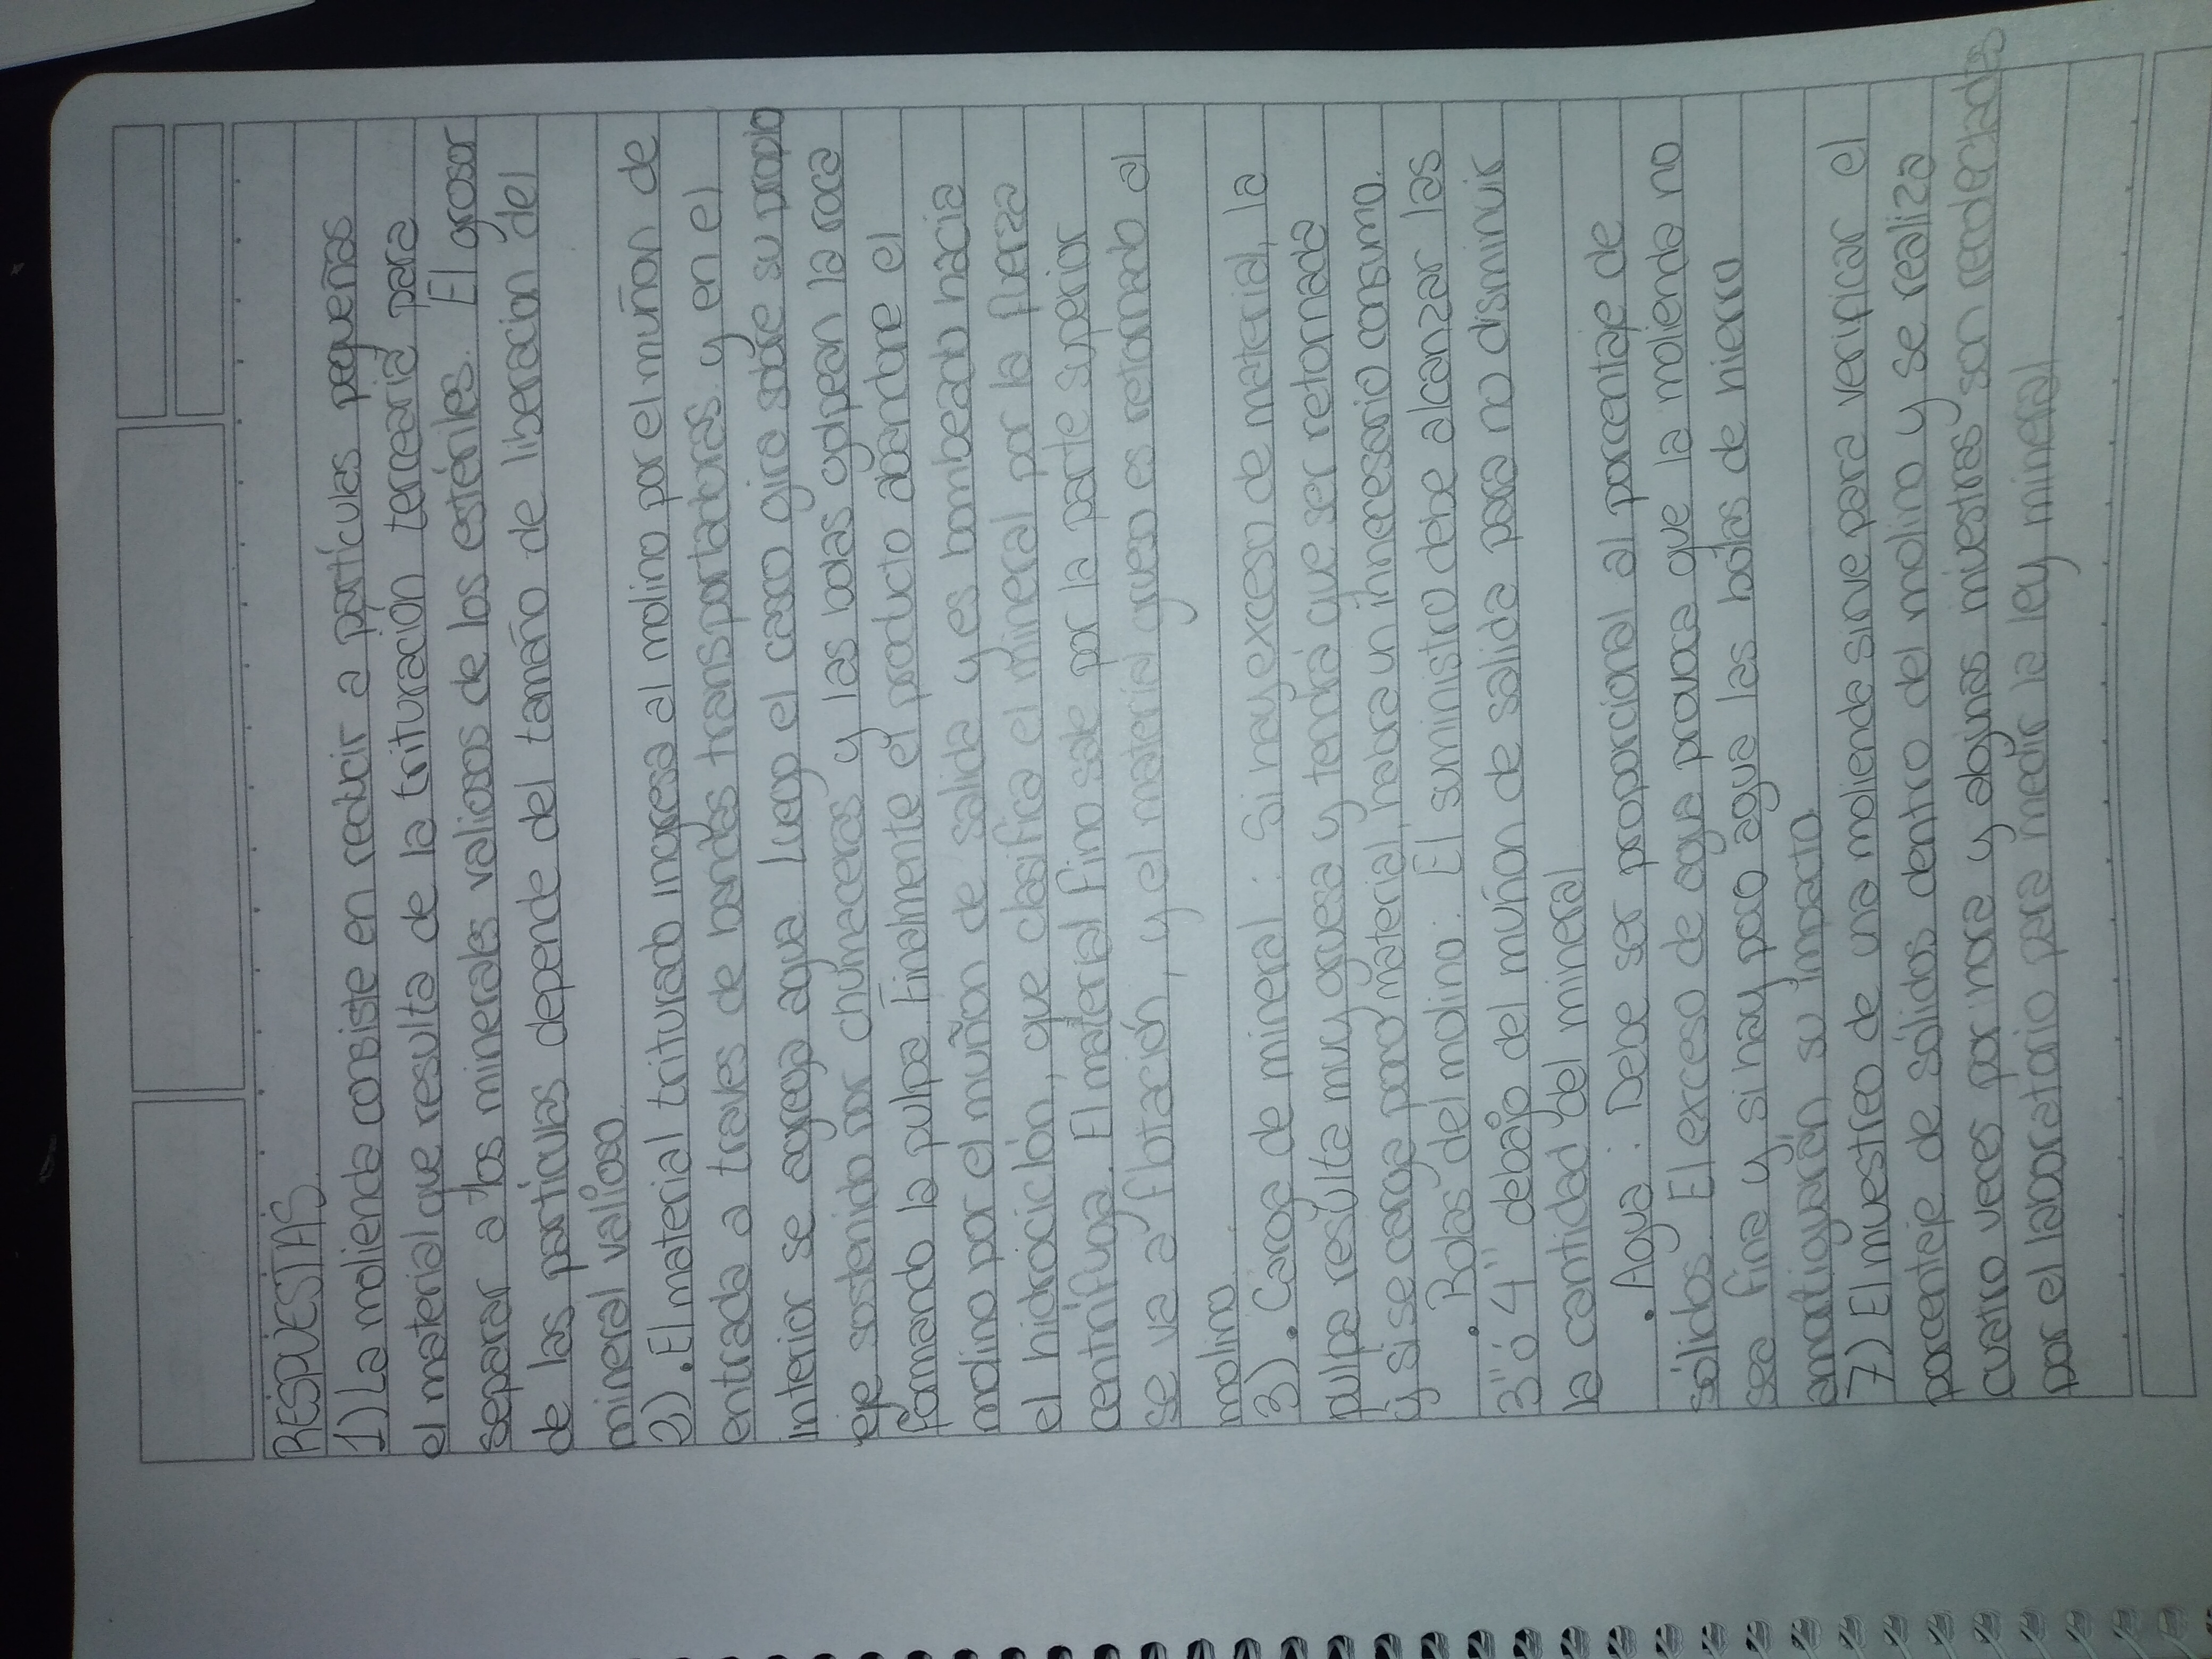 RESPUESTAS
1) La molienda consiste en reducir a partículas pequeñas
el material que resulta de la trituración tercearia para
separar a los minerales valiosos de los estériles. El grosor
de las particulas depende del tamaño de liberacion del
mineral valioso.
2) . El material triturado ingresa al molino por el muñon de
entrada a traves de bandas transportadoras y en el
interior se agrega agua. Luego el casco gira sobre su propio
eje sostenido por chumaceras y las bolas golpean la roca
formando la pulpa. Finalmente el producto abandone el
molino por el muñon de salida y es bombeado hacia
el hidrociclón, que clasifica el mineral por la fuerza
centrífuga. El material fino sale por la parte superior
se va a flotación, y el material grueso es retornado al
molino.
3) . Carga de mineral : Si hay exceso de material, la
pulpa resulta muy gruesa y tendrá que ser retornada
y si se carga paro material, habra un innecesario consumo.
. Bolas del molino : El suministro debe alcanzar las
3" ó 4" debajo del muñon de salida para no disminuir
la cantidad del mineral
. Agua : Debe ser proporcional al porcentaje de
sólidos. El exceso de agua provoca que la molienda no
sea fina y si hay poco agua las bolas de hierro
amortiguarán su impacto.
7) El muestreo de una molienda sirve para verificar el
porcentaje de sólidos dentro del molino y se realiza
cuatro veces por hora y algunas muestras son recolectadas
por el laboratorio para medir la ley mineral